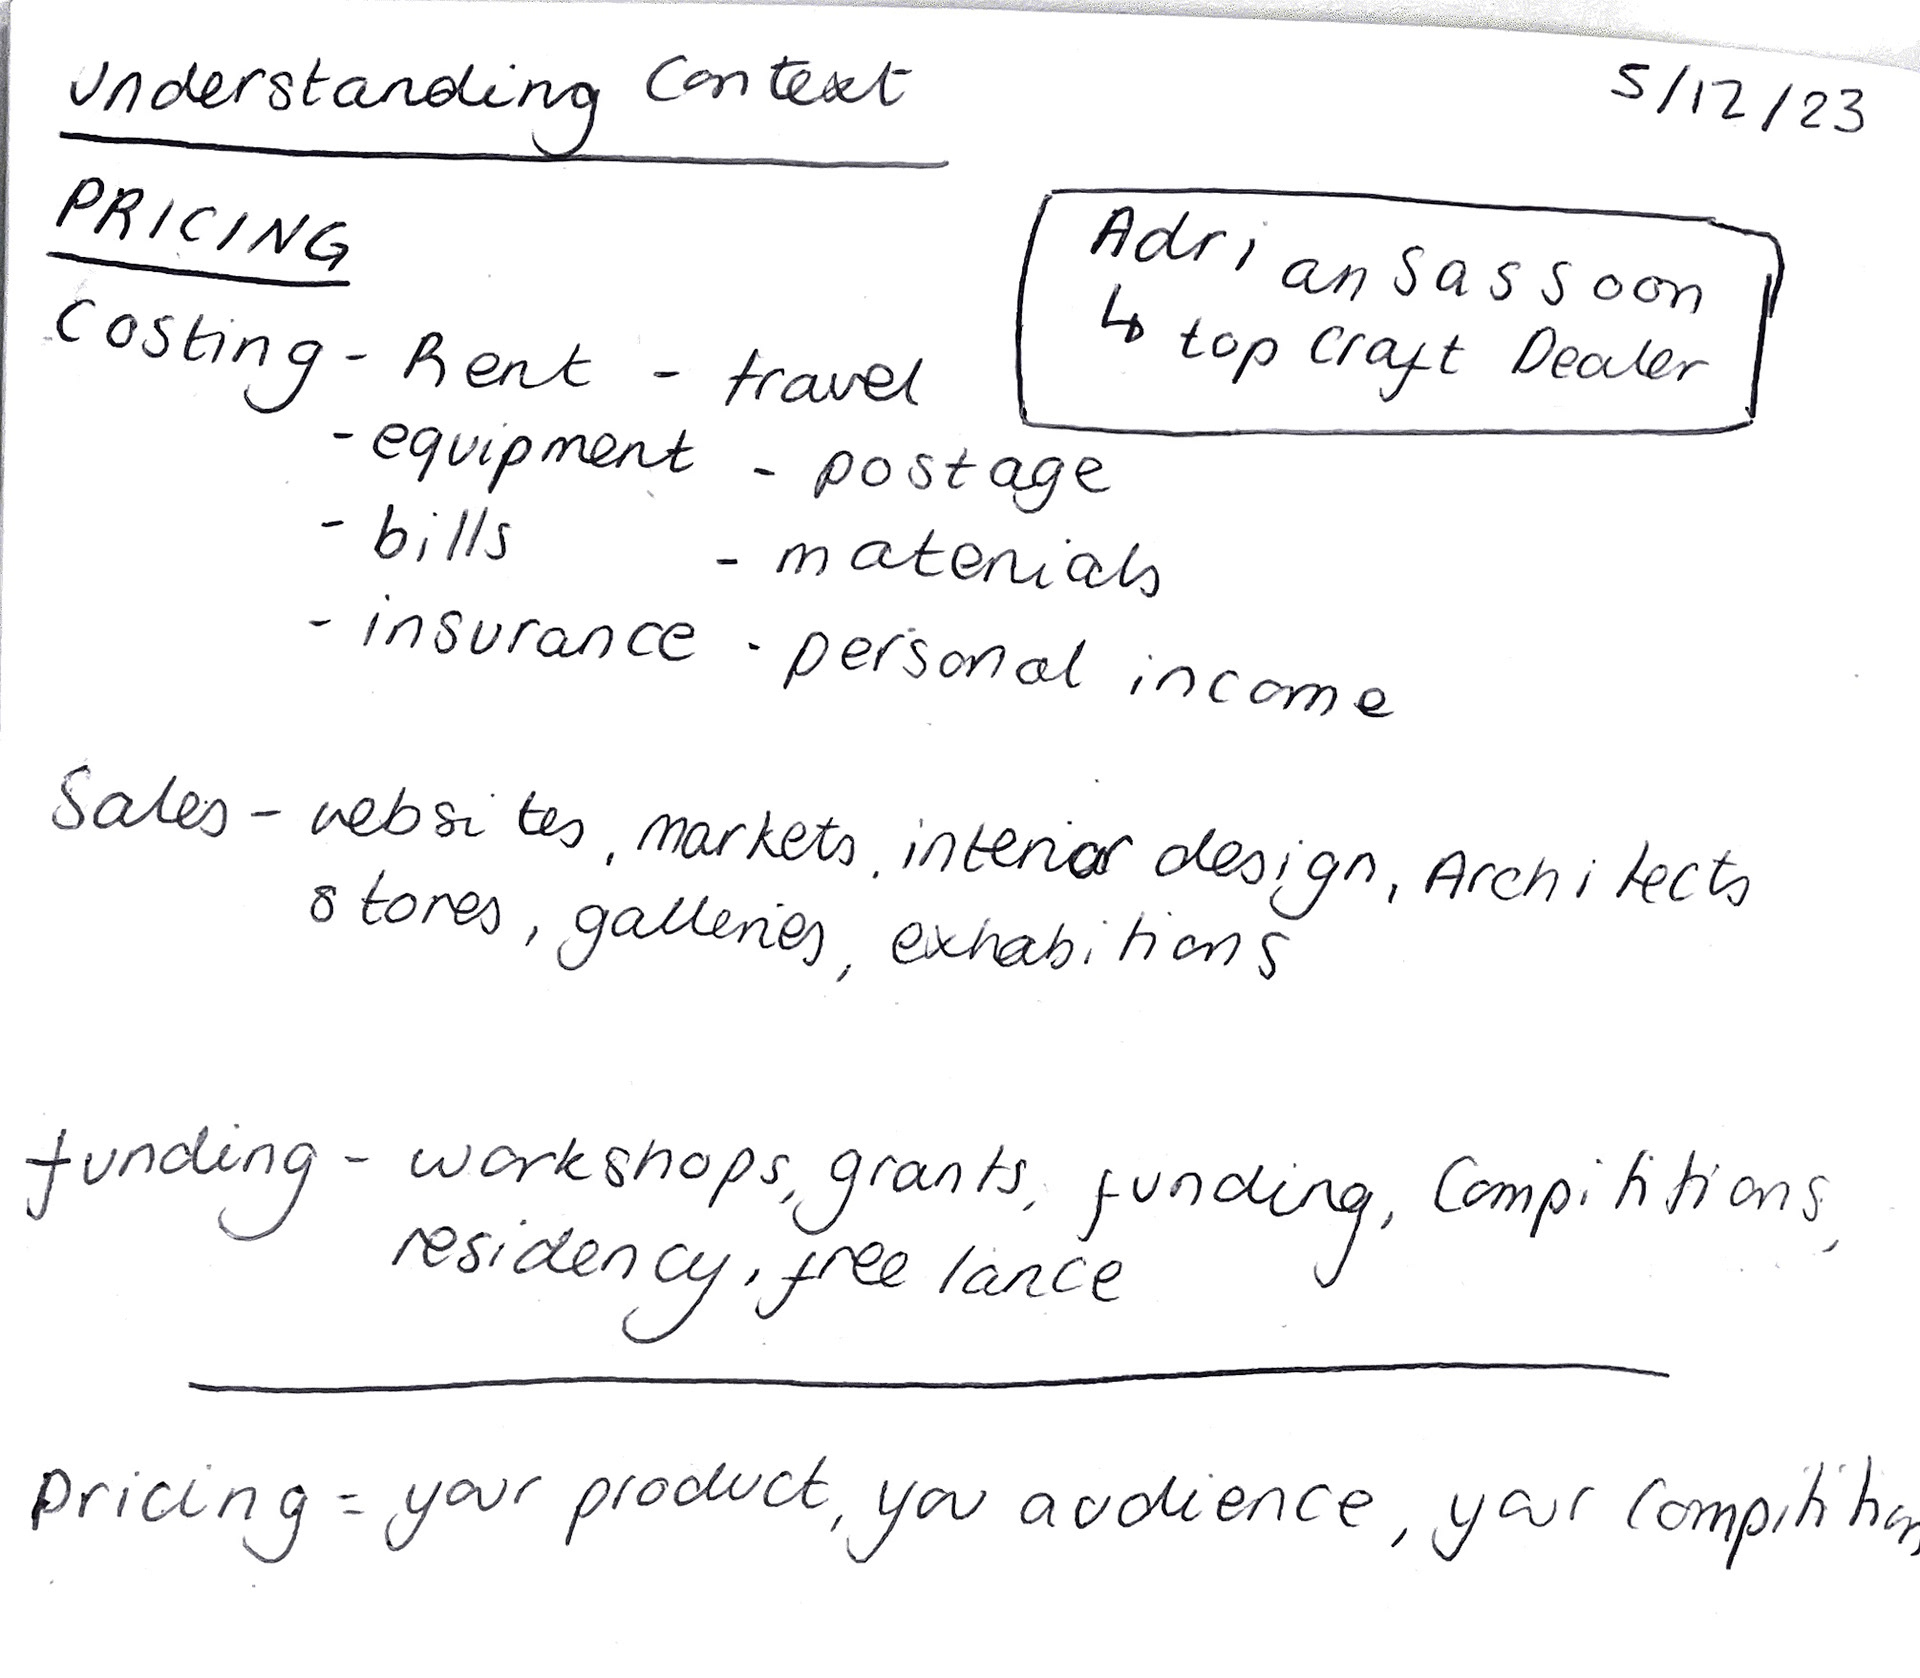 Understanding Context
5/12/23
PRICING
Adrian Sassoon
↳ top Craft Dealer
Costing - Rent - travel
- equipment - postage
- bills - materials
- insurance - personal income
Sales - websites, markets, interior design, Architects
stores, galleries, exhabitions
funding - workshops, grants, funding, Compititions,
residency, free lance
pricing = your product, you audience, your Compitition